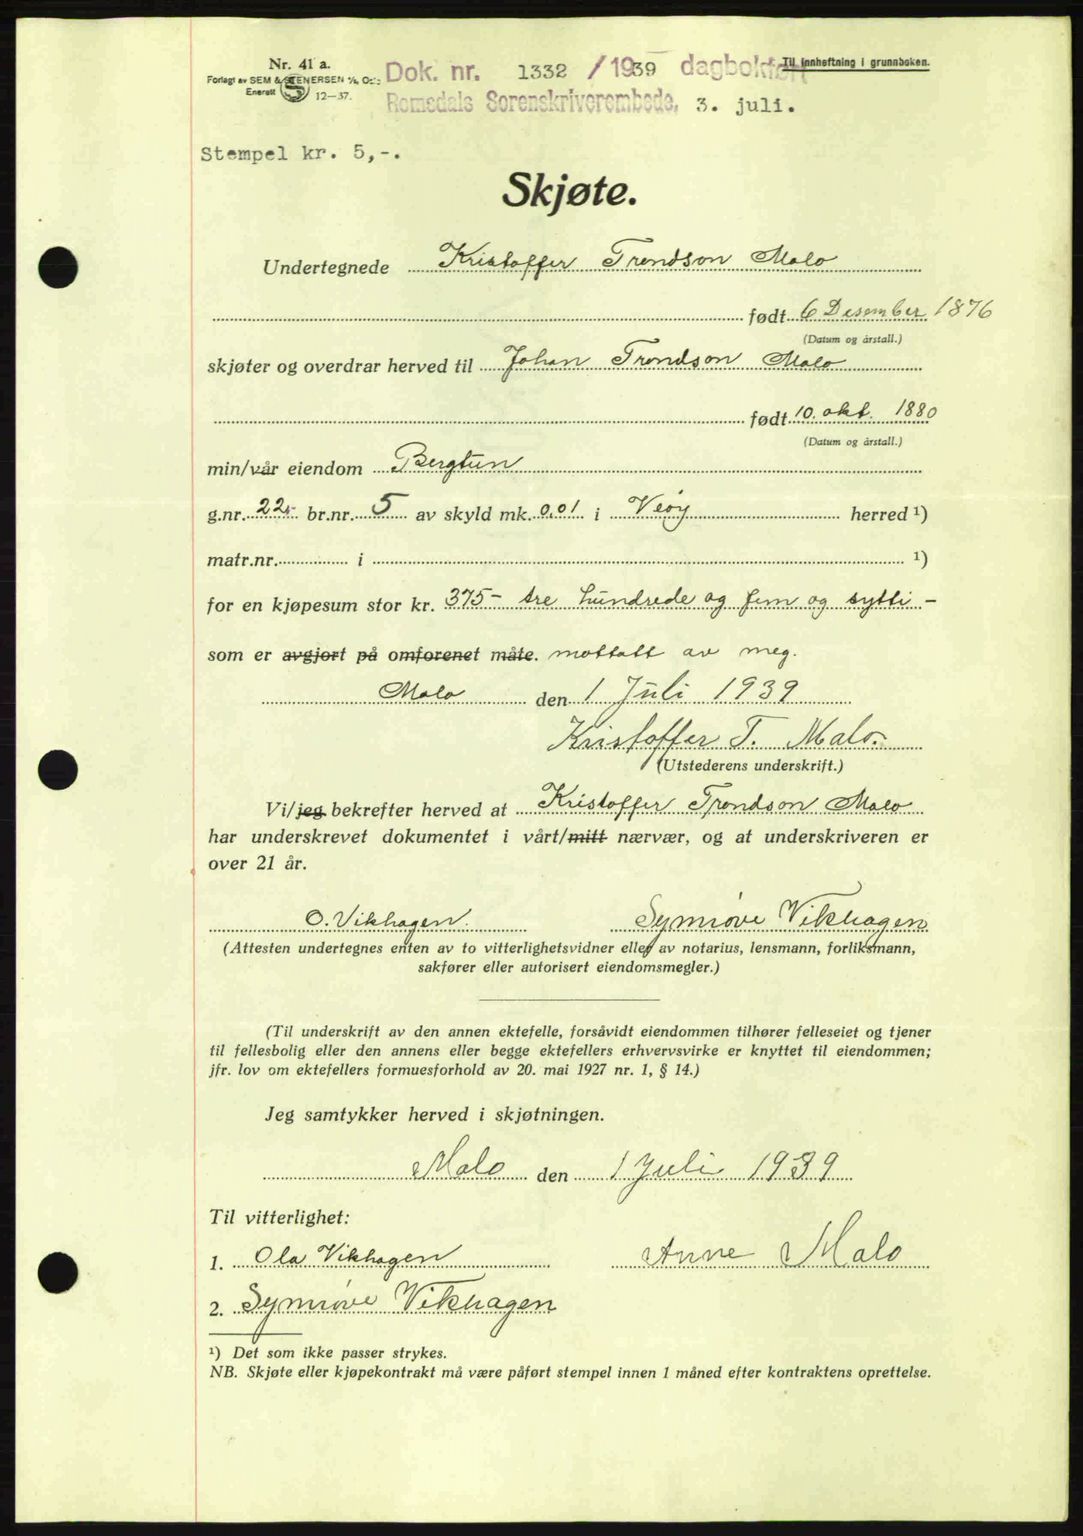 Nr. 41 a.
Forlagt av SEM & STENERSEN A/S, Oslo
Enerett 12—37.
Dok. nr. 1332 / 1939 dagbokført
Til innheftning i grunnboken.
Romsdals Sorenskriverembede, 3. juli.
Stempel kr. 5,-.
Skjøte.
Undertegnede Kristoffer Trondson Malo
født 6 Desember 1876
(Datum og årstall.)
skjøter og overdrar herved til Johan Trondson Malo
født 10. okt. 1880
(Datum og årstall.)
min/vår eiendom Bergtun
g.nr. 22 br.nr. 5 av skyld mk. 0,01 i Veøy herred ¹)
matr.nr. i ¹)
for en kjøpesum stor kr. 375- tre hundrede og fem og sytti -
som er avgjort på omforenet måte. mottatt av meg.
Malo den 1 Juli 1939
Kristoffer T. Malo.
(Utstederens underskrift.)
Vi/jeg bekrefter herved at Kristoffer Trondson Malo
har underskrevet dokumentet i vårt/mitt nærvær, og at underskriveren er
over 21 år.
O. Vikhagen. Synnøve Vikhagen
(Attesten undertegnes enten av to vitterlighetsvidner eller av notarius, lensmann, forliksmann,
sakfører eller autorisert eiendomsmegler.)
(Til underskrift av den annen ektefelle, forsåvidt eiendommen tilhører felleseiet og tjener
til fellesbolig eller den annens eller begge ektefellers erhvervsvirke er knyttet til eiendommen;
jfr. lov om ektefellers formuesforhold av 20. mai 1927 nr. 1, § 14.)
Jeg samtykker herved i skjøtningen.
Malo den 1 Juli 1939
Til vitterlighet:
1. Ola Vikhagen Anne Malo
2. Synnøve Vikhagen
¹) Det som ikke passer strykes.
NB. Skjøte eller kjøpekontrakt må være påført stempel innen 1 måned efter kontraktens oprettelse.